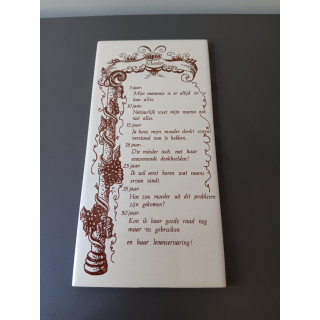 Moeder
5 jaar:
Mijn mamma is er altijd en
kan alles.
10 jaar:
Natuurlijk weet mijn mama ook
niet alles.
15 jaar:
Ja hoor, mijn moeder denkt overal
verstand van te hebben.
18 jaar:
Die moeder toch, met haar
ouderwetse denkbeelden!
25 jaar:
Ik wil eerst horen wat mama
ervan vindt.
35 jaar:
Hoe zou moeder uit dit probleem
zijn gekomen?
50 jaar:
Kon ik haar goede raad nog
maar eens gebruiken
en haar levenservaring!